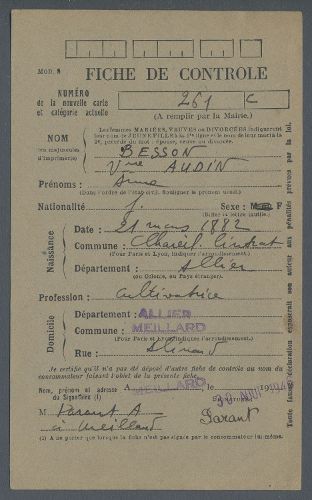 MOD. N
FICHE DE CONTROLE
NUMÉRO
de la nouvelle carte
et catégorie actuelle
261 C
(A remplir par la Mairie.)
NOM
(en majuscules
d'imprimerie)
Les femmes MARIÉES, VEUVES ou DIVORCÉES indiqueront
leur nom de JEUNE FILLE sur la 1re ligne et le nom de leur mari à la
2e, précédé du mot : épouse, veuve ou divorcée.
BESSON
Vve AUDIN
Prénoms : Anna
(Dans l'ordre de l'état civil. Souligner le prénom usuel.)
Nationalité f. Sexe : F
(Biffer la lettre inutile.)
Naissance
Date : 21 mars 1882
Commune : Chareil Cintrat
(Pour Paris et Lyon, indiquer l'arrondissement.)
Département : Allier
(ou Colonie, ou Pays étranger).
Profession : cultivatrice
Domicile
Département : ALLIER
Commune : MEILLARD
(Pour Paris et Lyon, indiquer l'arrondissement.)
Rue :
Je certifie qu'il n'a pas été déposé d'autre fiche de contrôle au nom du
consommateur faisant l'objet de la présente fiche.
Nom, prénom et adresse
du Signataire (1)
A MEILLARD, le 30 194
Signature,
M Parant A
à Meillard
Parant
(1) A ne porter que lorsque la fiche n'est pas signée par le consommateur lui-même.
Toute fausse déclaration exposerait son auteur aux pénalités prévues par la loi.